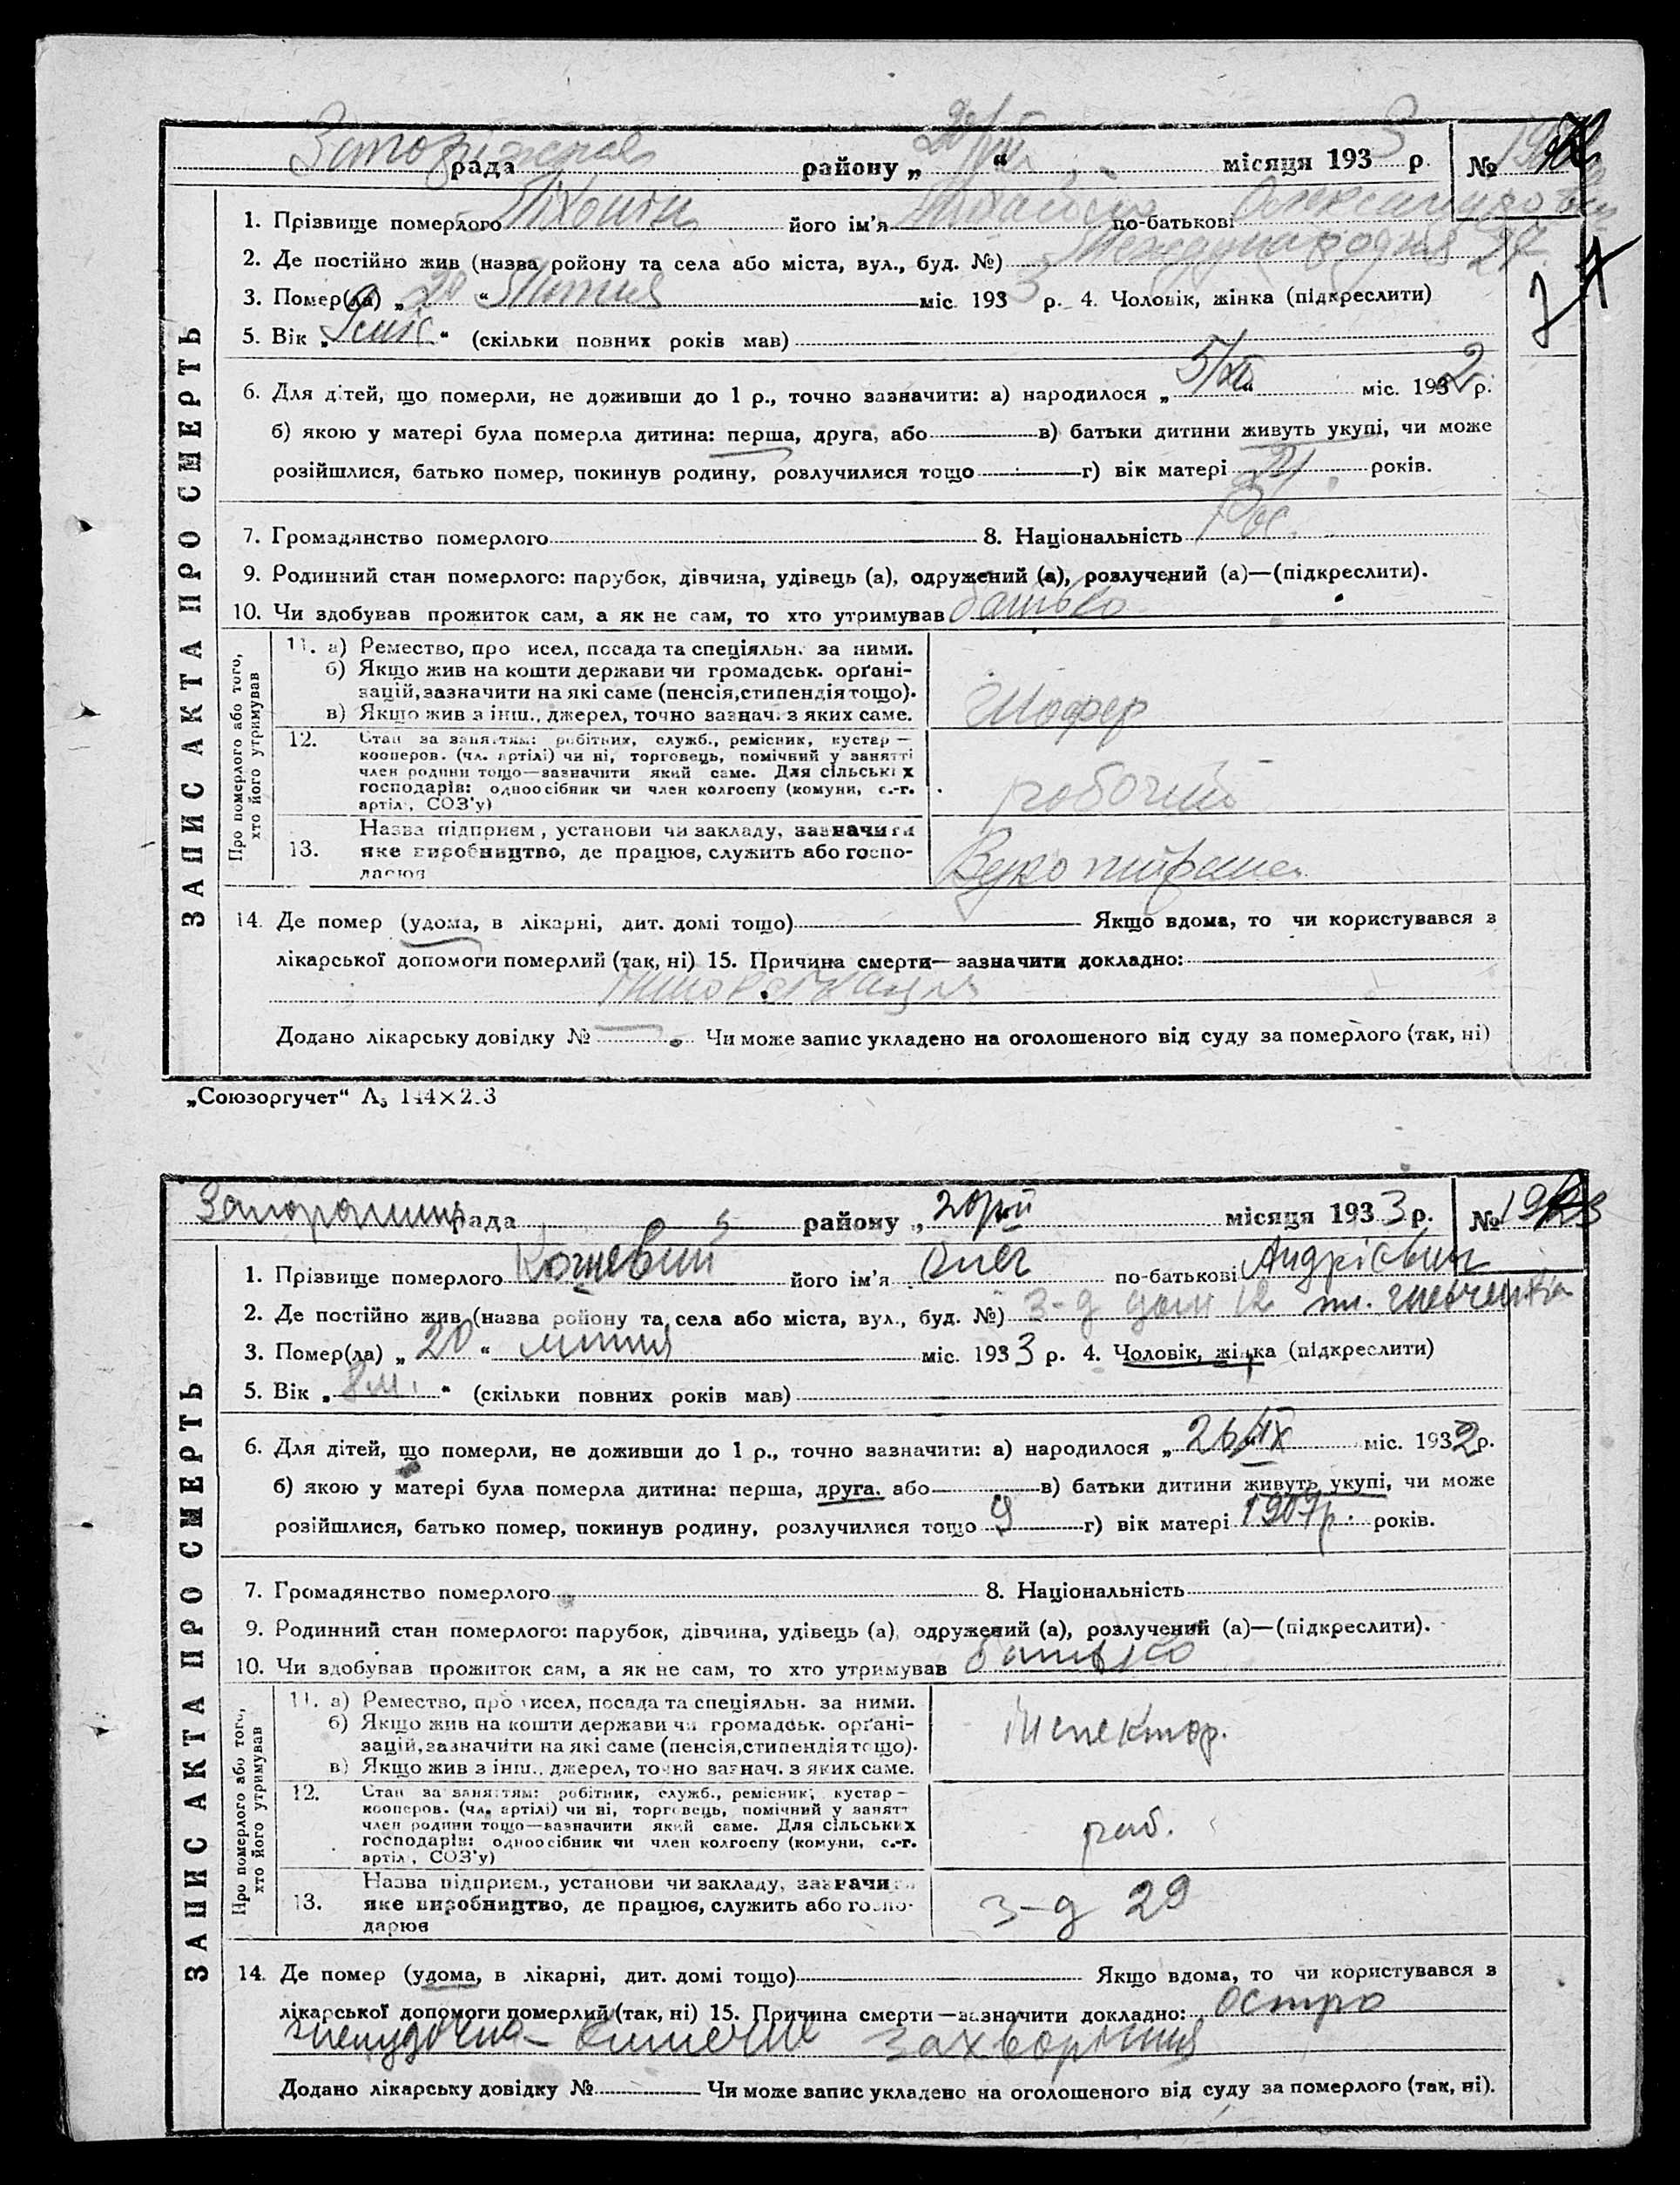 рада району „ 20/VII “ місяця 1933 р. №
1. Прізвище померлого його ім'я по-батькові Олександрович
2. Де постійно жив (назва ройону та села або міста, вул., буд. №) Международня 27
3. Помер(ла) „ 20 “ Липня міс. 1933 р. 4. Чоловік, жінка (підкреслити)
5. Вік „ “ (скільки повних років мав)
6. Для дітей, що померли, не доживши до 1 р., точно зазначити: а) народилося „ “ міс. 1932 р.
б) якою у матері була померла дитина: перша, друга, або в) батьки дитини живуть укупі, чи може
розійшлися, батько помер, покинув родину, розлучилися тощо г) вік матері 21 років.
7. Громадянство померлого 8. Національність Рос.
9. Родинний стан померлого: парубок, дівчина, удівець (а), одружений (а), розлучений (а)—(підкреслити).
10. Чи здобував прожиток сам, а як не сам, то хто утримував батько
ЗАПИС АКТА ПРО СМЕРТЬ
Про померлого або того, хто його утримував
11. а) Ремество, про исел, посада та спеціяльн. за ними.
б) Якщо жив на кошти держави чи громадськ. орґані-
зацій, зазначити на які саме (пенсія, стипендія тощо).
в) Якщо жив з інш., джерел, точно зазнач. з яких саме.
Шофер
12. Стан за заняттям: робітник, служб., ремісник, кустар—
кооперов. (чл. артілі) чи ні, торговець, помічний у занятті
член родини тощо—зазначити який саме. Для сільських
господарів: одноосібник чи член колгоспу (комуни, с.-г.
артіл., СОЗ'у)
робочий
13. Назва підприєм., установи чи закладу, зазначити
яке виробництво, де працює, служить або госпо-
дарює
14. Де помер (удома, в лікарні, дит. домі тощо) Якщо вдома, то чи користувався з
лікарської допомоги померлий (так, ні) 15. Причина смерти—зазначити докладно:
Додано лікарську довідку № Чи може запис укладено на оголошеного від суду за померлого (так, ні)
„Союзоргучет“ А₅ 144×2.3
рада району „ “ місяця 1933 р. №
1. Прізвище померлого його ім'я Олег по-батькові Андрієвич
2. Де постійно жив (назва ройону та села або міста, вул., буд. №) 3-д дом 12 пл. Шевченка
3. Помер(ла) „ 20 “ липня міс. 1933 р. 4. Чоловік, жінка (підкреслити)
5. Вік „ 8 м. “ (скільки повних років мав)
6. Для дітей, що померли, не доживши до 1 р., точно зазначити: а) народилося „ 26/IX “ міс. 1932 р.
б) якою у матері була померла дитина: перша, друга, або в) батьки дитини живуть укупі, чи може
розійшлися, батько помер, покинув родину, розлучилися тощо г) вік матері 1909 р. років.
7. Громадянство померлого 8. Національність
9. Родинний стан померлого: парубок, дівчина, удівець (а), одружений (а), розлучений (а)—(підкреслити).
10. Чи здобував прожиток сам, а як не сам, то хто утримував батько
ЗАПИС АКТА ПРО СМЕРТЬ
Про померлого або того, хто його утримував
11. а) Ремество, про исел, посада та спеціяльн. за ними.
б) Якщо жив на кошти держави чи громадськ. орґані-
зацій, зазначити на які саме (пенсія, стипендія тощо).
в) Якщо жив з інш., джерел, точно зазнач. з яких саме.
Інспектор.
12. Стан за заняттям: робітник, служб., ремісник, кустар—
кооперов. (чл. артілі) чи ні, торговець, помічний у занятт
член родини тощо—зазначити який саме. Для сільських
господарів: одноосібник чи член колгоспу (комуни, с.-г.
артіл., СОЗ'у)
роб.
13. Назва підприєм., установи чи закладу, зазначити
яке виробництво, де працює, служить або госпо-
дарює
3-д 29
14. Де помер (удома, в лікарні, дит. домі тощо) Якщо вдома, то чи користувався з
лікарської допомоги померлий (так, ні) 15. Причина смерти—зазначити докладно: остро
желудочно-кишечне захворіння
Додано лікарську довідку № Чи може запис укладено на оголошеного від суду за померлого (так, ні).